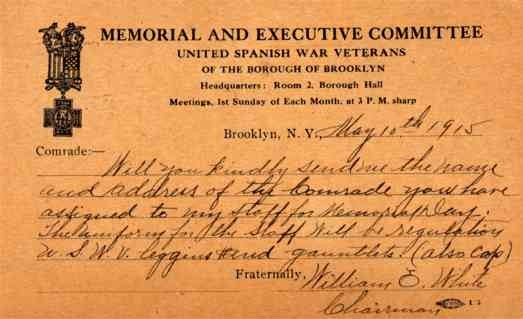 MEMORIAL AND EXECUTIVE COMMITTEE
UNITED SPANISH WAR VETERANS
OF THE BOROUGH OF BROOKLYN
Headquarters: Room 2, Borough Hall
Meetings, 1st Sunday of Each Month, at 3 P. M. sharp
Brooklyn, N. Y., May 10th 1915
Comrade:—
Will you kindly send me the name
and address of the Comrade you have
assigned to my staff for Memorial Day.
The uniform for the staff will be regulation
U. S. W. V. leggins and gauntlets. (also Cap)
Fraternally, William E. White
Chairman